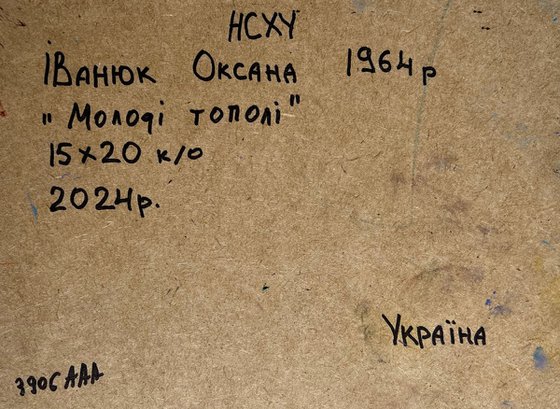 НСХУ
Іванюк Оксана 1964р
"Молоді тополі"
15х20 к/о
2024р.
Україна
390САAA